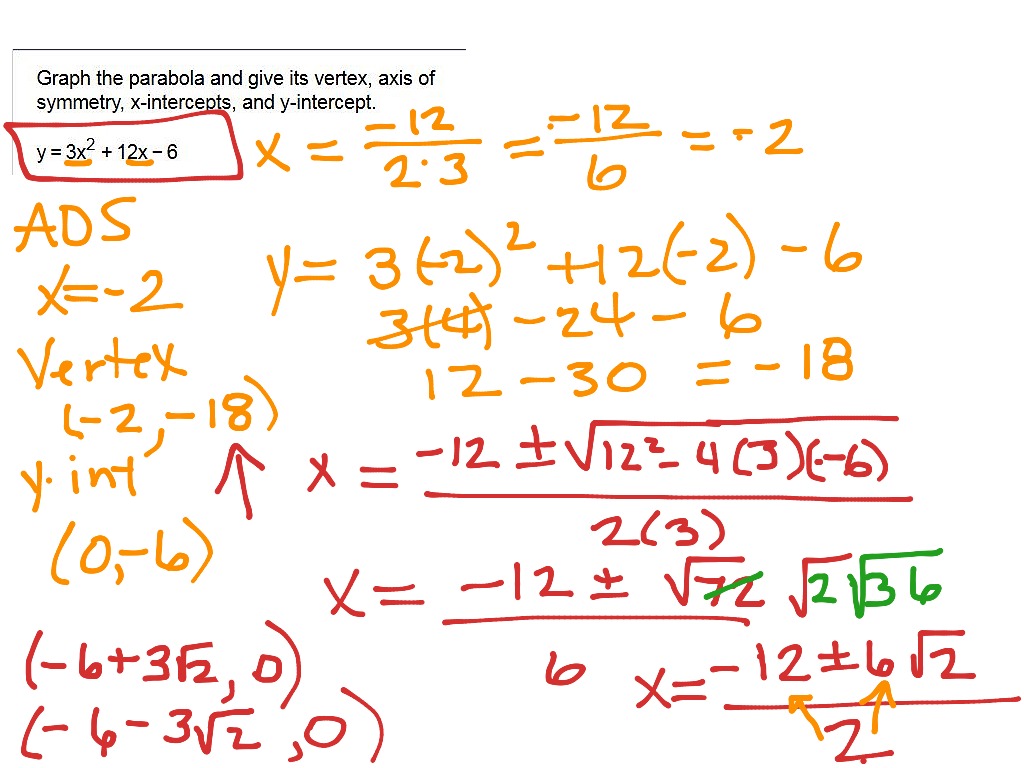 Graph the parabola and give its vertex, axis of
symmetry, x-intercepts, and y-intercept.
y = 3x² + 12x − 6
x = -12/2·3 = -12/6 = -2
AOS
x=-2
y = 3(-2)² +12(-2) - 6
3(4) - 24 - 6
12 - 30 = -18
Vertex
(-2, -18)
y. int
(0, -6)
x = -12 ± √12² - 4(3)(-6) / 2(3)
x = -12 ± √72 √2 √36 / 6
x = -12 ± 6√2 / 2
(-6+3√2, 0)
(-6-3√2, 0)